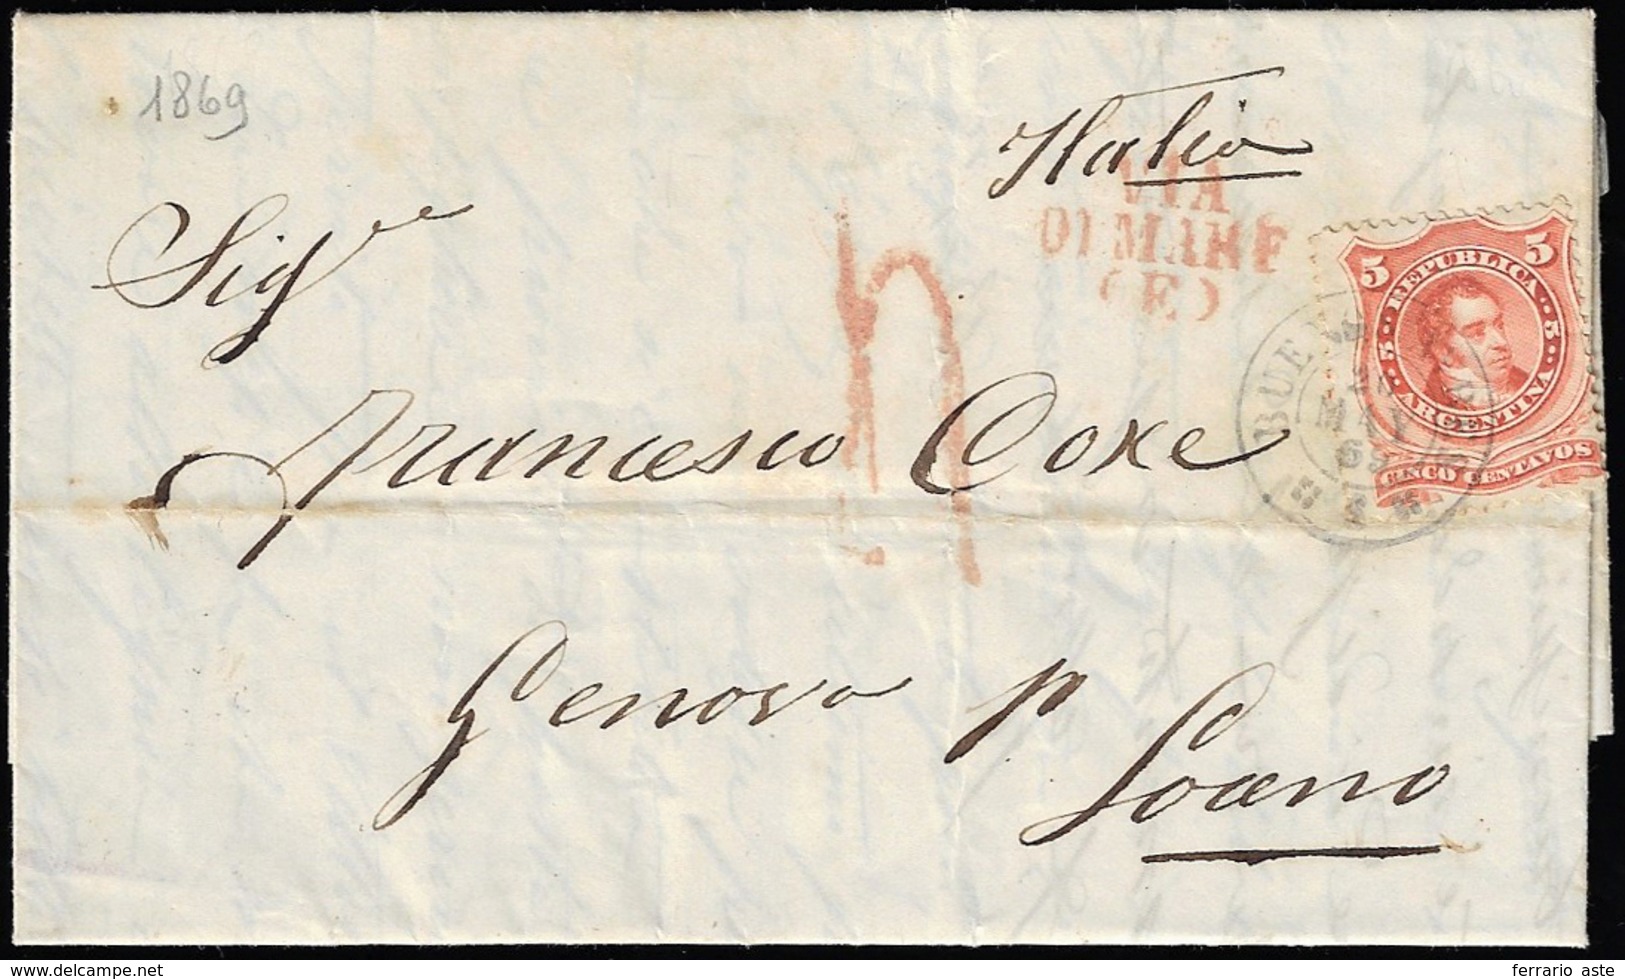 1869
Italia
VIA
DI MARE
(E)
Sigre
Francesco Coxe
Genova p
Loano
5 REPUBLICA 5
5 5
ARGENTINA
CINCO CENTAVOS
BUEN
MAY
69
delcampe.net
ferrario aste